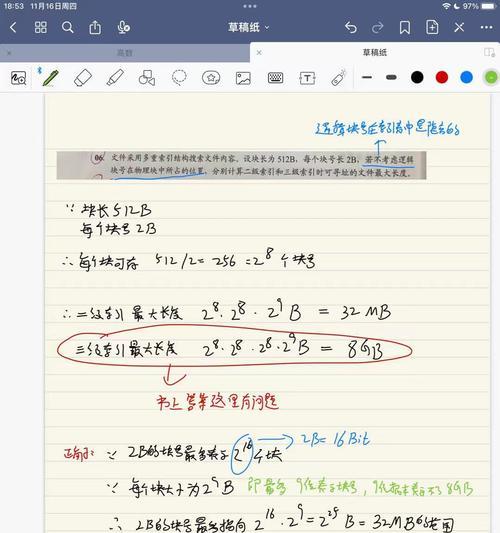 18:53 11月16日周四
97%
草稿纸
高数
草稿纸
逻辑块号在索引表中是隐含的
06. 文件采用多重索引结构搜索文件内容。设块长为 512B，每个块号长 2B，若不考虑逻辑
块号在物理块中所占的位置，分别计算二级索引和三级索引时可寻址的文件最大长度。
∵ 块长 512B
每个块号 2B
∴ 每个块可存 512/2 = 256 = 2^8 个块号
∴ 二级索引最大长度 2^8 · 2^8 · 2^9 B = 32 MB
三级索引最大长度 2^8 · 2^8 · 2^8 · 2^9 B = 8GB
书上答案这里有问题
∵ 2B的块号最多表示 2^16 个块
2B = 16Bit
∵ 每个块大小为 2^9 B
∴ 2B的块号最多指向 2^16 · 2^9 = 2^25 B = 32MB的范围